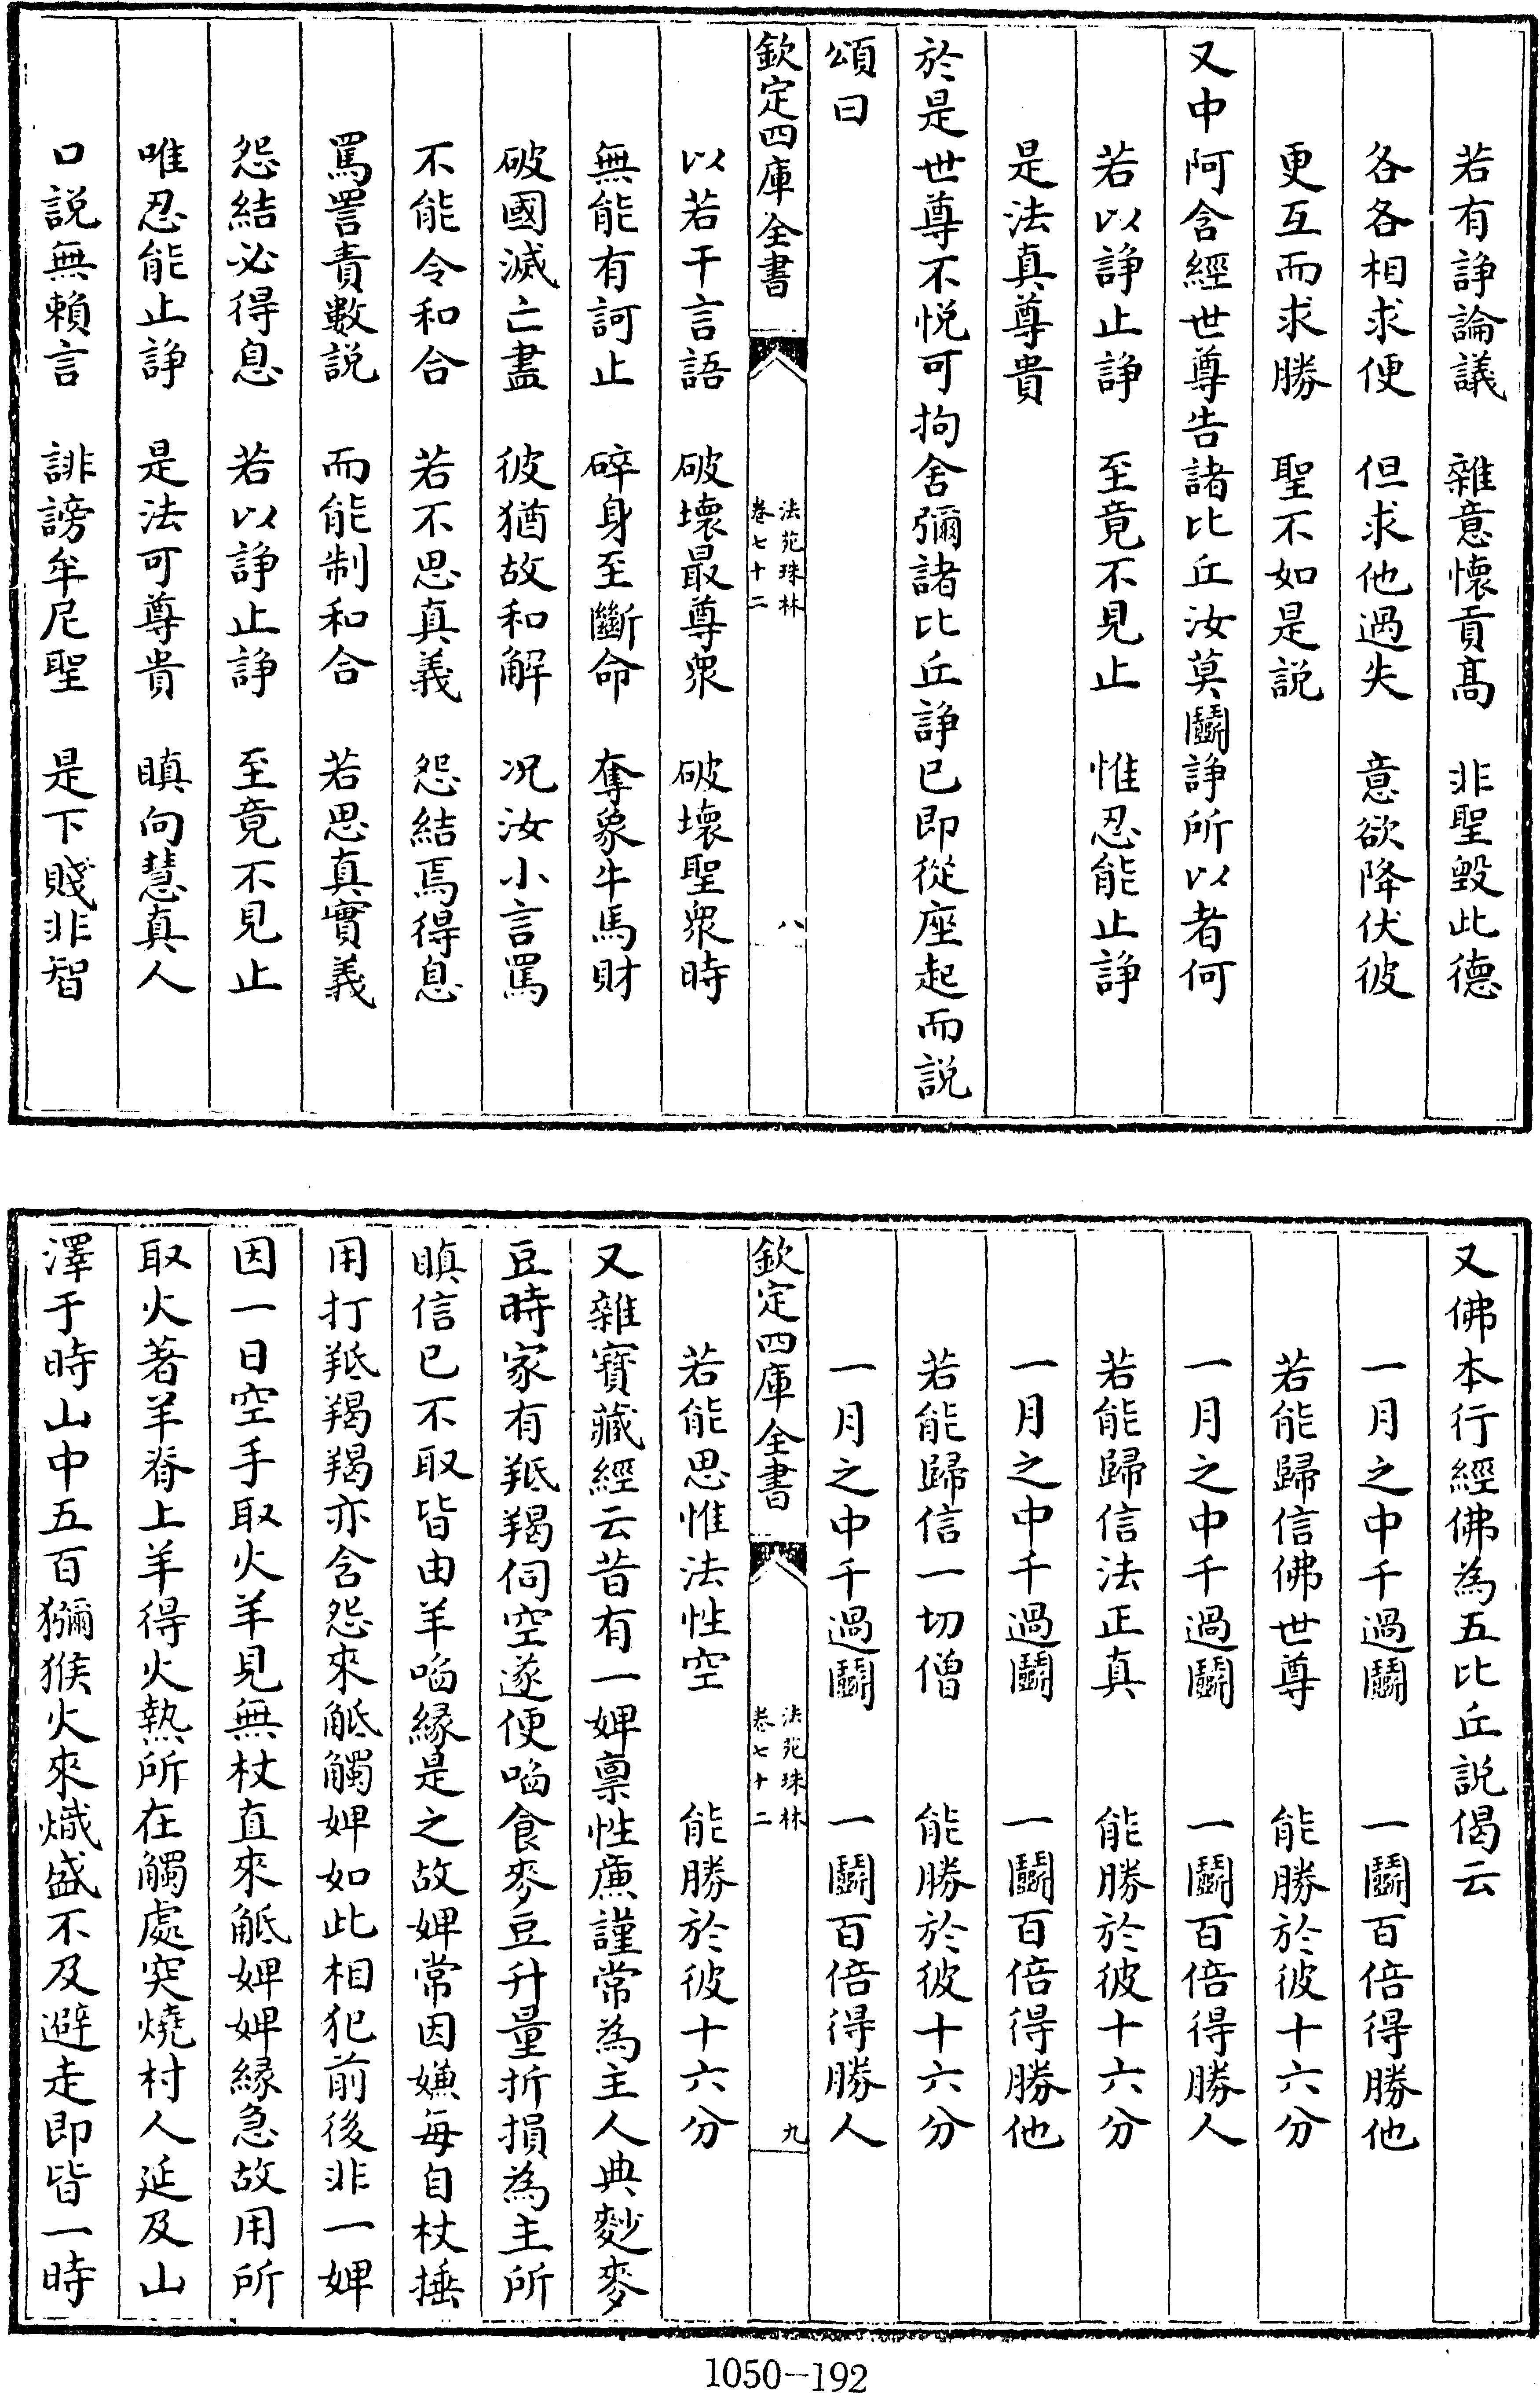 若有諍論議　雜意懷貢髙　非聖毀此德
各各相求便　但求他過失　意欲降伏彼
更互而求勝　聖不如是説
又中阿含經世尊告諸比丘汝莫鬭諍所以者何
若以諍止諍　至竟不見止　惟忍能止諍
是法真尊貴
於是世尊不悦可拘舍彌諸比丘諍已即從座起而説
頌曰
欽定四庫全書　法苑珠林卷七十二　八
以若干言語　破壞最尊衆　破壞聖衆時
無能有訶止　碎身至斷命　奪象牛馬財
破國滅亡盡　彼猶故和解　况汝小言罵
不能令和合　若不思真義　怨結焉得息
罵詈責數説　而能制和合　若思真實義
怨結必得息　若以諍止諍　至竟不見止
唯忍能止諍　是法可尊貴　瞋向慧真人
口説無賴言　誹謗牟尼聖　是下賤非智
又佛本行經佛為五比丘説偈云
一月之中千過鬭　一鬭百倍得勝他
若能歸信佛世尊　能勝於彼十六分
一月之中千過鬭　一鬭百倍得勝人
若能歸信法正真　能勝於彼十六分
一月之中千過鬭　一鬭百倍得勝他
若能歸信一切僧　能勝於彼十六分
一月之中千過鬭　一鬭百倍得勝人
欽定四庫全書　法苑珠林卷七十二　九
若能思惟法性空　能勝於彼十六分
又雜寶藏經云昔有一婢禀性廉謹常為主人典麨麥
豆時家有羝羯伺空遂便啗食麥豆升量折損為主所
瞋信已不取皆由羊啗緣是之故婢常因嫌每自杖捶
用打羝羯羯亦含怨來觝觸婢如此相犯前後非一婢
因一日空手取火羊見無杖直來觝婢婢緣急故用所
取火著羊脊上羊得火熱所在觸處突燒村人延及山
澤于時山中五百獼猴火來熾盛不及避走即皆一時
1050-192